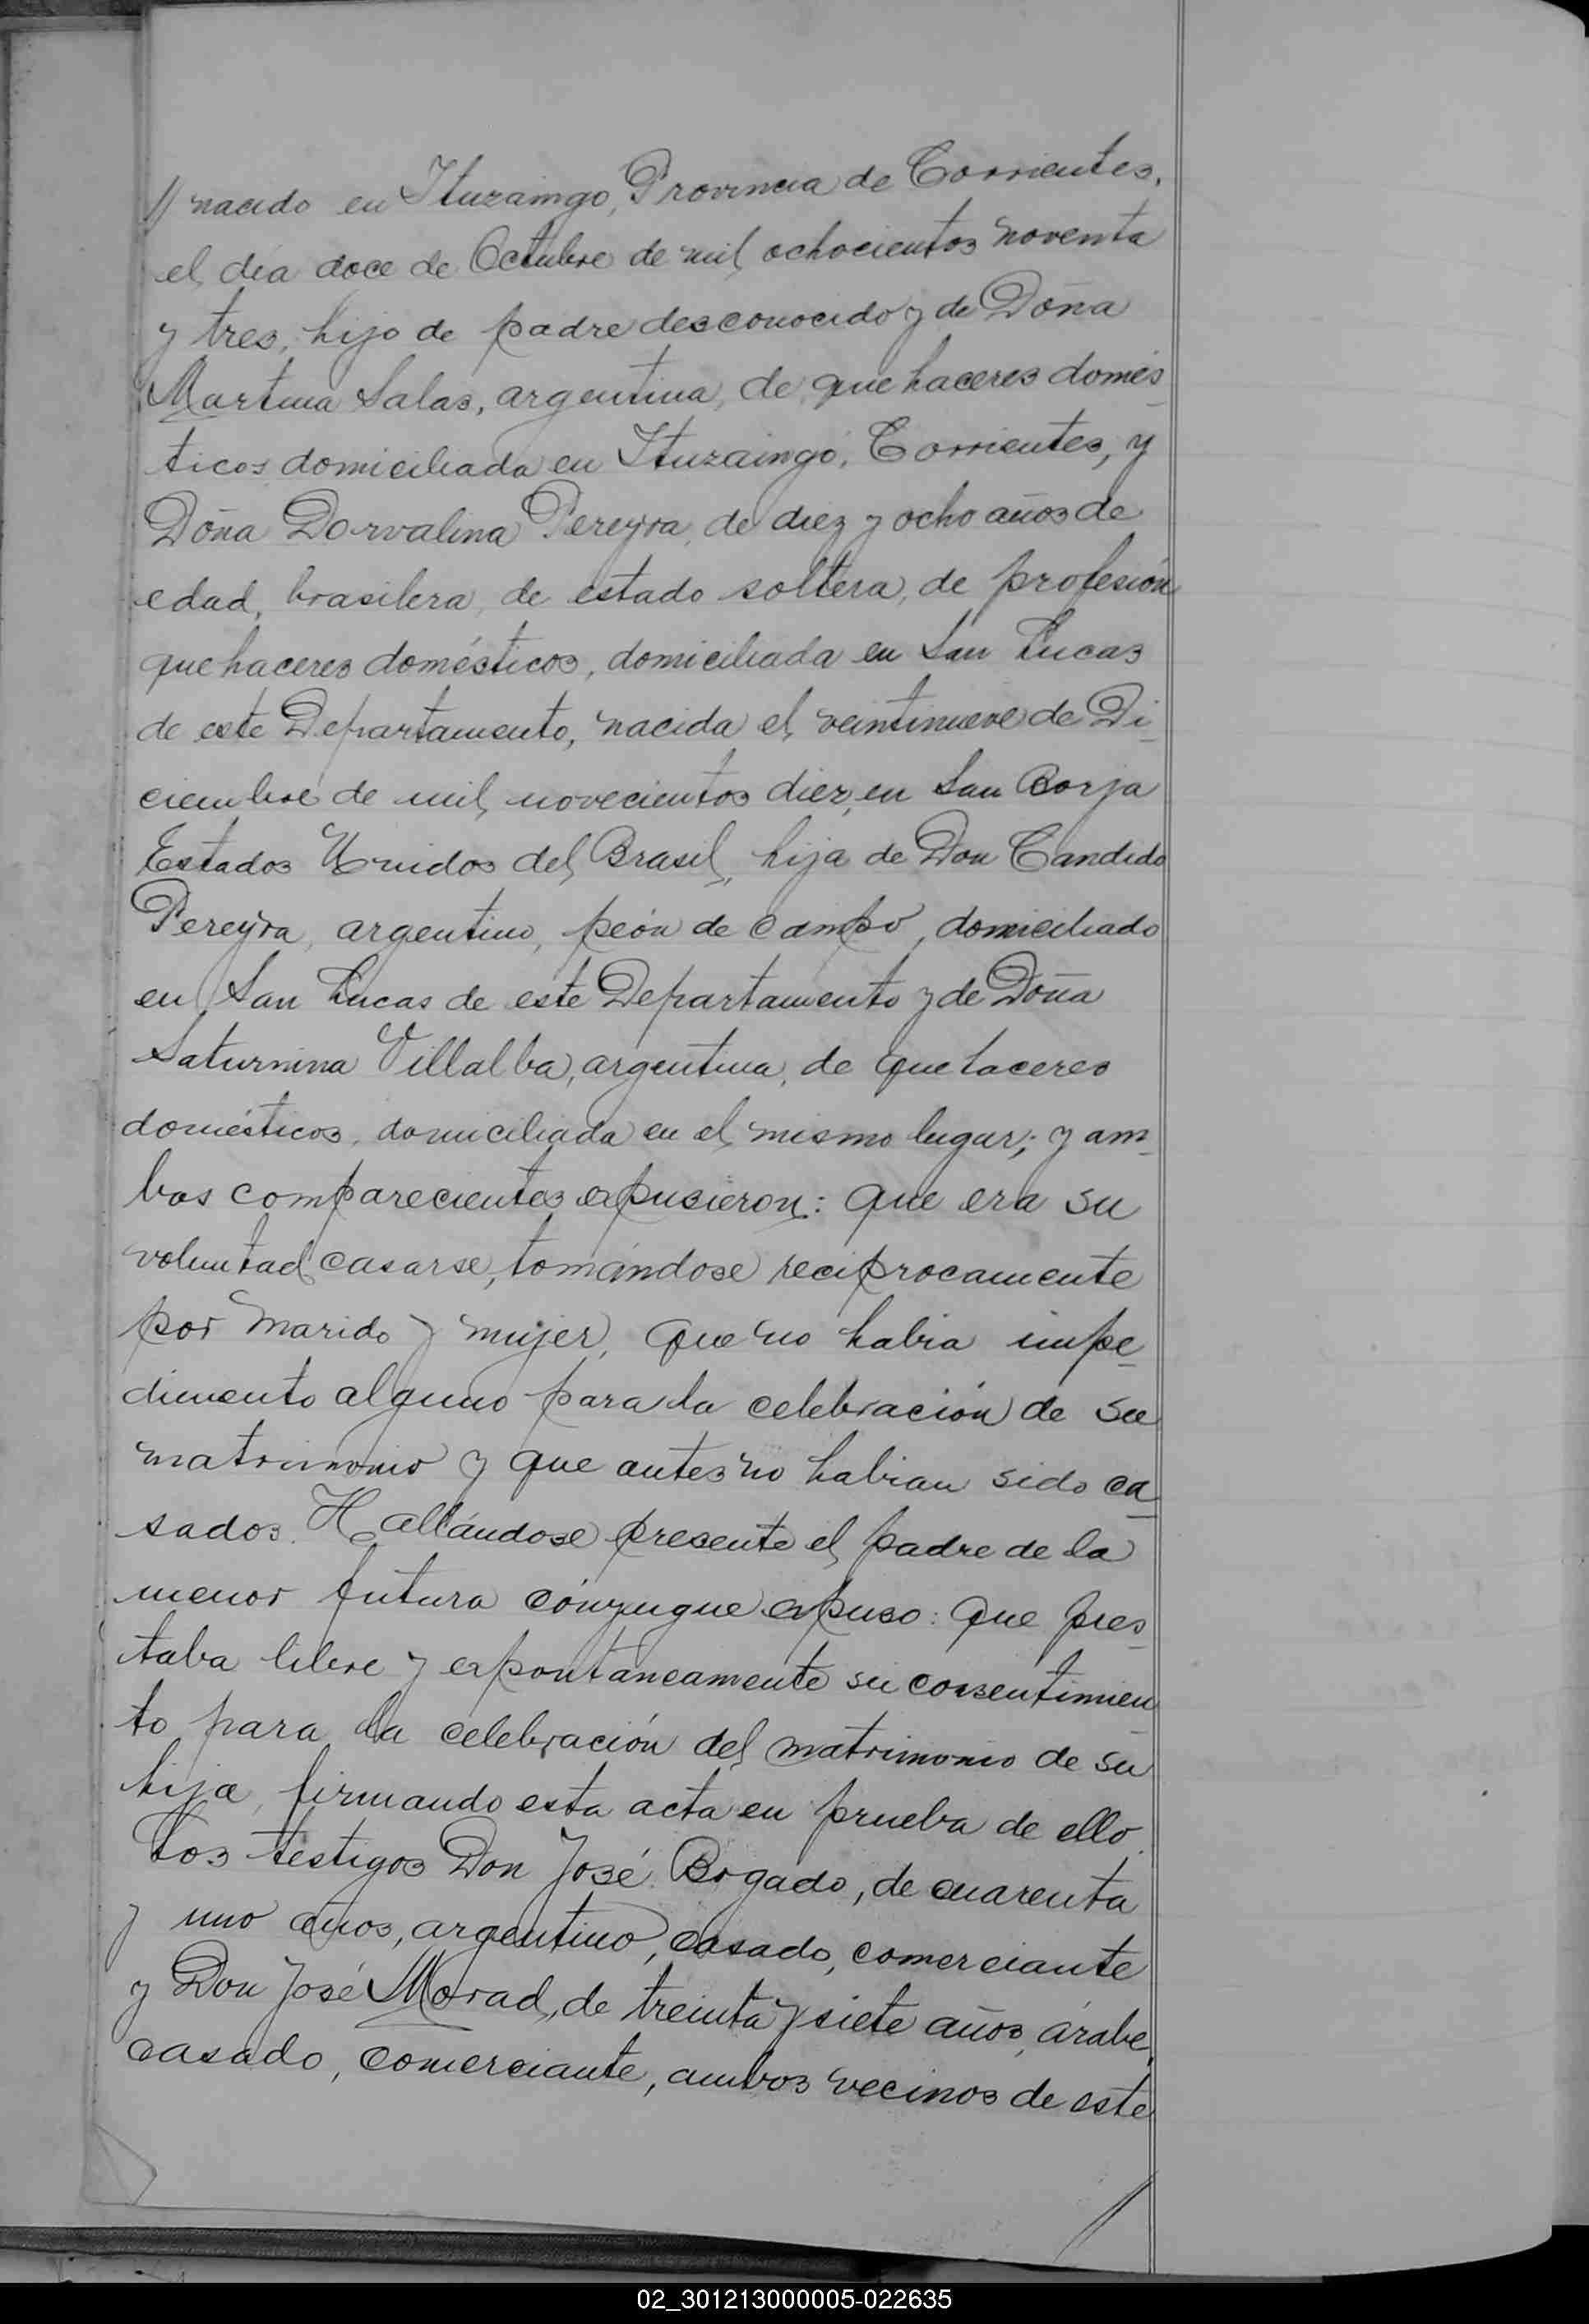 // nacido en Ituzaingo, Provincia de Corrientes,
el día doce de Octubre de mil ochocientos noventa
y tres, hijo de padre desconocido y de Doña
Martina Salas, argentina, de que haceres domés-
ticos domiciliada en Ituzaingó, Corrientes, y
Doña Dorvalina Pereyra, de diez y ocho años de
edad, brasilera, de estado soltera, de profesión
que haceres domésticos, domiciliada en San Lucas
de este Departamento, nacida el veintinueve de Di-
ciembre de mil novecientos diez, en San Borja
Estados Unidos del Brasil, hija de Don Candido
Pereyra, argentino, peón de campo, domiciliado
en San Lucas de este Departamento y de Doña
Saturnina Villalba, argentina, de que haceres
domésticos, domiciliada en el mismo lugar; y am-
bos comparecientes expusieron: que era su
voluntad casarse, tomándose reciprocamente
por marido y mujer, que no habia impe-
dimento alguno para la celebración de su
matrimonio y que antes no habian sido ca-
sados. Hallándose presente el padre de la
menor futura cónyugue expuso: que pres-
taba libre y expontaneamente su consentimien-
to para la celebración del matrimonio de su
hija, firmando esta acta en prueba de ello.
Los testigos Don José Bogado, de cuarenta
y uno años, argentino, casado, comerciante
y Don José Morad, de treinta y siete años, árabe,
casado, comerciante, ambos vecinos de este
02_301213000005-022635